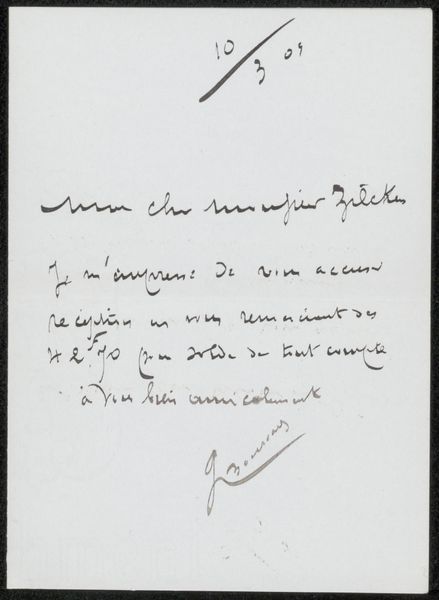 10/3 09
Mon cher Monsieur Zilcken
Je m'empresse de vous accuser
reception en vous remerciant des
42f,70 pour solde de tout compte
à vous bien amicalement
G